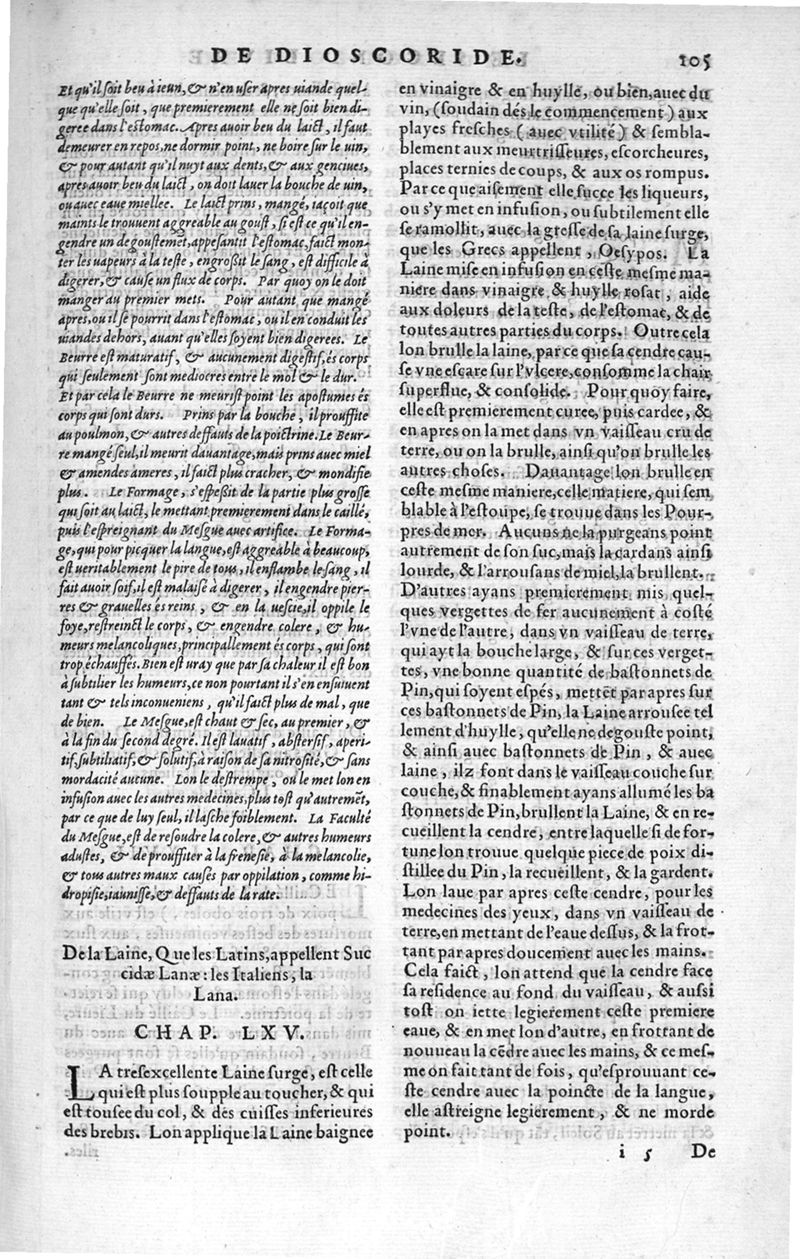 DE DIOSCORIDE. 105
Et qu'il soit beu à ieun, & n'en user apres uiande quel-
que qu'elle soit, que premierement elle ne soit bien di-
geree dans l'estomac. Apres auoir beu du laict, il faut
demeurer en repos, ne dormir point, ne boire sur le uin,
& pour autant qu'il nuyt aux dents, & aux genciues,
apres auoir beu du laict, on doit lauer la bouche de uin,
ou auec eaue miellee. Le laict prins, mangé, iaçoit que
maints le trouuent aggreable au goust, si est ce qu'il en-
gendre un degoustemēt, appesantit l'estomac, faict mon-
ter les uapeurs à la teste, engroßit le sang, est difficile à
digerer, & cause un flux de corps. Par quoy on le doit
manger au premier mets. Pour autant que mangé
apres, ou il se pourrit dans l'estomac, ou il en conduit les
uiandes dehors, auant qu'elles soyent bien digerees. Le
Beurre est maturatif, & aucunement digestif, és corps
qui seulement sont mediocres entre le mol & le dur.
Et par cela le Beurre ne meurist point les apostumes és
corps qui sont durs. Prins par la bouche, il prouffite
au poulmon, & autres deffauts de la poictrine. Le Beur-
re mangé seul, il meurit dauantage, mais prins auec miel
& amendes ameres, il faict plus cracher, & mondifie
plus. Le Formage, s'espeßit de la partie plus grosse
qui soit au laict, le mettant premierement dans le caillé,
puis l'espreignant du Mesgue auec artifice. Le Forma-
ge, qui pour picquer la langue, est aggreable à beaucoup,
est ueritablement le pire de tous, il enflambe le sang, il
fait auoir soif, il est malaisé à digerer, il engendre pier-
res & grauelles és reins, & en la uescie, il oppile le
foye, restreinct le corps, & engendre colere, & hu-
meurs melancoliques, principallement és corps, qui sont
trop échauffés. Bien est uray que par sa chaleur il est bon
à subtilier les humeurs, ce non pourtant il s'en ensuiuent
tant & tels inconueniens, qu'il faict plus de mal, que
de bien. Le Mesgue, est chaut & sec, au premier, &
à la fin du second degré. Il est lauatif, abstersif, aperi-
tif, subtiliatif, & solutif, à raison de sa nitrosité, & sans
mordacité aucune. Lon le destrempe, ou le met lon en
infusion auec les autres medecines, plus tost qu'autremēt,
par ce que de luy seul, il lasche foiblement. La Faculté
du Mesgue, est de resoudre la colere, & autres humeurs
adustes, & de prouffiter à la frenesie, à la melancolie,
& tous autres maux causés par oppilation, comme hi-
dropisie, iaunisse, & deffauts de la rate.
De la Laine, Que les Latins, appellent Suc
cidæ Lanæ: les Italiens, la
Lana.
CHAP. LXV.
LA tresexcellente Laine surge, est celle
qui est plus soupple au toucher, & qui
est tousee du col, & des cuisses inferieures
des brebis. Lon applique la Laine baignee
en vinaigre & en huylle, ou bien, auec du
vin, (soudain dés le commencement) aux
playes fresches (auec vtilité) & sembla-
blement aux meurtrisseures, escorcheures,
places ternies de coups, & aux os rompus.
Par ce que aisement elle succe les liqueurs,
ou s'y met en infusion, ou subtilement elle
se ramollit, auec la gresse de sa laine surge,
que les Grecs appellent, Oesypos. La
Laine mise en infusion en ceste mesme ma-
niere dans vinaigre & huylle rosat, aide
aux doleurs de la teste, de l'estomac, & de
toutes autres parties du corps. Outre cela
lon brulle la laine, par ce que sa cendre cau-
se vne escare sur l'vlcere, consomme la chair
superflue, & consolide. Pour quoy faire,
elle est premierement curee, puis cardee, &
en apres on la met dans vn vaisseau cru de
terre, ou on la brulle, ainsi qu'on brulle les
autres choses. Dauantage lon brulle en
ceste mesme maniere, celle matiere, qui sem
blable à l'estoupe, se trouue dans les Pour-
pres de mer. Aucuns ne la purgeans point
autrement de son suc, mais la cardans ainsi
lourde, & l'arrousans de miel, la brullent.
D'autres ayans premierement mis quel-
ques vergettes de fer aucunement à costé
l'vne de l'autre, dans vn vaisseau de terre,
qui ayt la bouche large, & sur ces verget-
tes, vne bonne quantité de bastonnets de
Pin, qui soyent espés, mettēt par apres sur
ces bastonnets de Pin, la Laine arrousee tel
lement d'huylle, qu'elle ne degouste point,
& ainsi auec bastonnets de Pin, & auec
laine, ilz font dans le vaisseau couche sur
couche, & finablement ayans allumé les ba
stonnets de Pin, brullent la Laine, & en re-
cueillent la cendre, entre laquelle si de for-
tune lon trouue quelque piece de poix di-
stillee du Pin, la recueillent, & la gardent.
Lon laue par apres ceste cendre, pour les
medecines des yeux, dans vn vaisseau de
terre, en mettant de l'eaue dessus, & la frot-
tant par apres doucement auec les mains.
Cela faict, lon attend que la cendre face
sa residence au fond du vaisseau, & aussi
tost on iette legierement ceste premiere
eaue, & en met lon d'autre, en frottant de
nouueau la cēdre auec les mains, & ce mes-
me on fait tant de fois, qu'esprouuant ce-
ste cendre auec la poincte de la langue,
elle astreigne legierement, & ne morde
point.
i 5 De